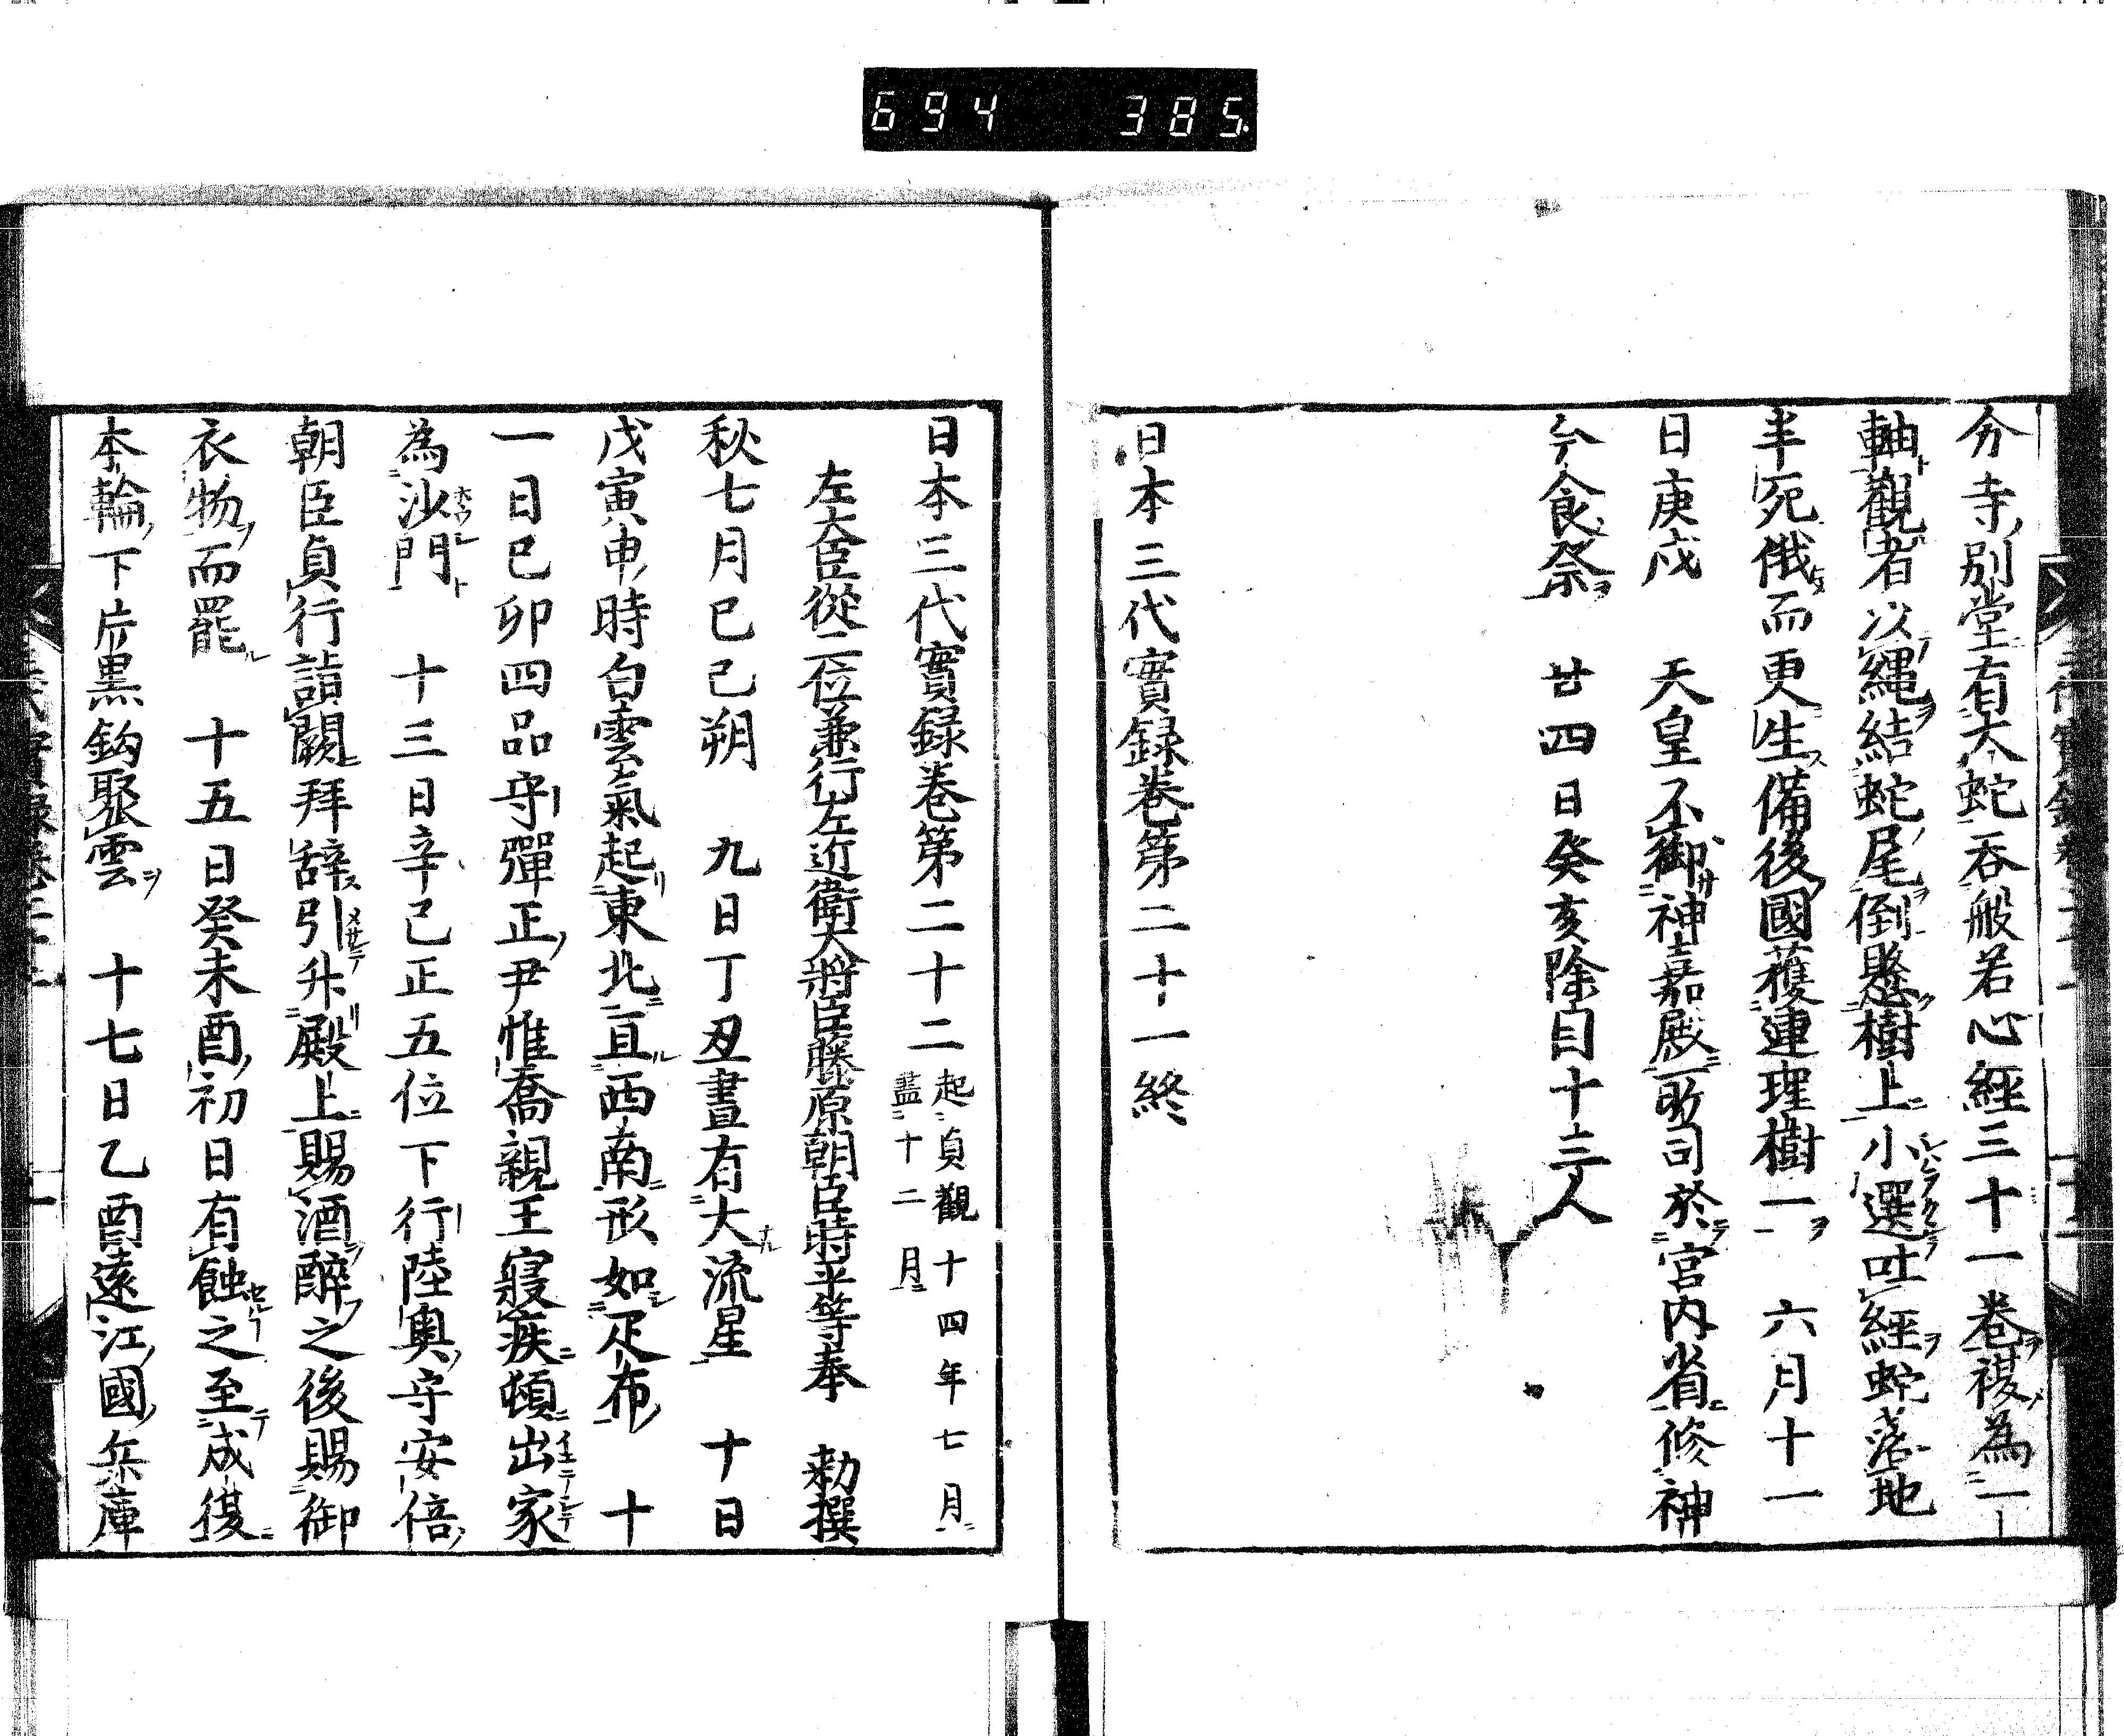 694 385
分寺別堂有大蛇呑般若心經三十一巻複為一
軸觀者以縄結蛇尾倒懸樹上小選吐經蛇落地
半死俄而更生備後國獲連理樹一 六月十一
日庚戌 天皇不御神嘉殿所司於宮内省修神
今食祭 廿四日癸亥除目十三人
日本三代實録巻第二十一終
日本三代實録巻第二十二 起貞觀十四年七月
盡十二月
左大臣從二位兼行左近衛大將臣藤原朝臣時平等奉 勅撰
秋七月己巳朔 九日丁丑晝有大流星 十日
戊寅申時白雲氣起東北亘西南形如疋布 十
一日己卯四品守彈正尹惟喬親王寢疾頓出家
為沙門 十三日辛巳正五位下行陸奥守安倍
朝臣貞行詣闕拜辭引升殿上賜酒醉之後賜御
衣物而罷 十五日癸未酉初日有蝕之至戌復
本輪下片黒鈎聚雲 十七日乙酉遠江國兵庫